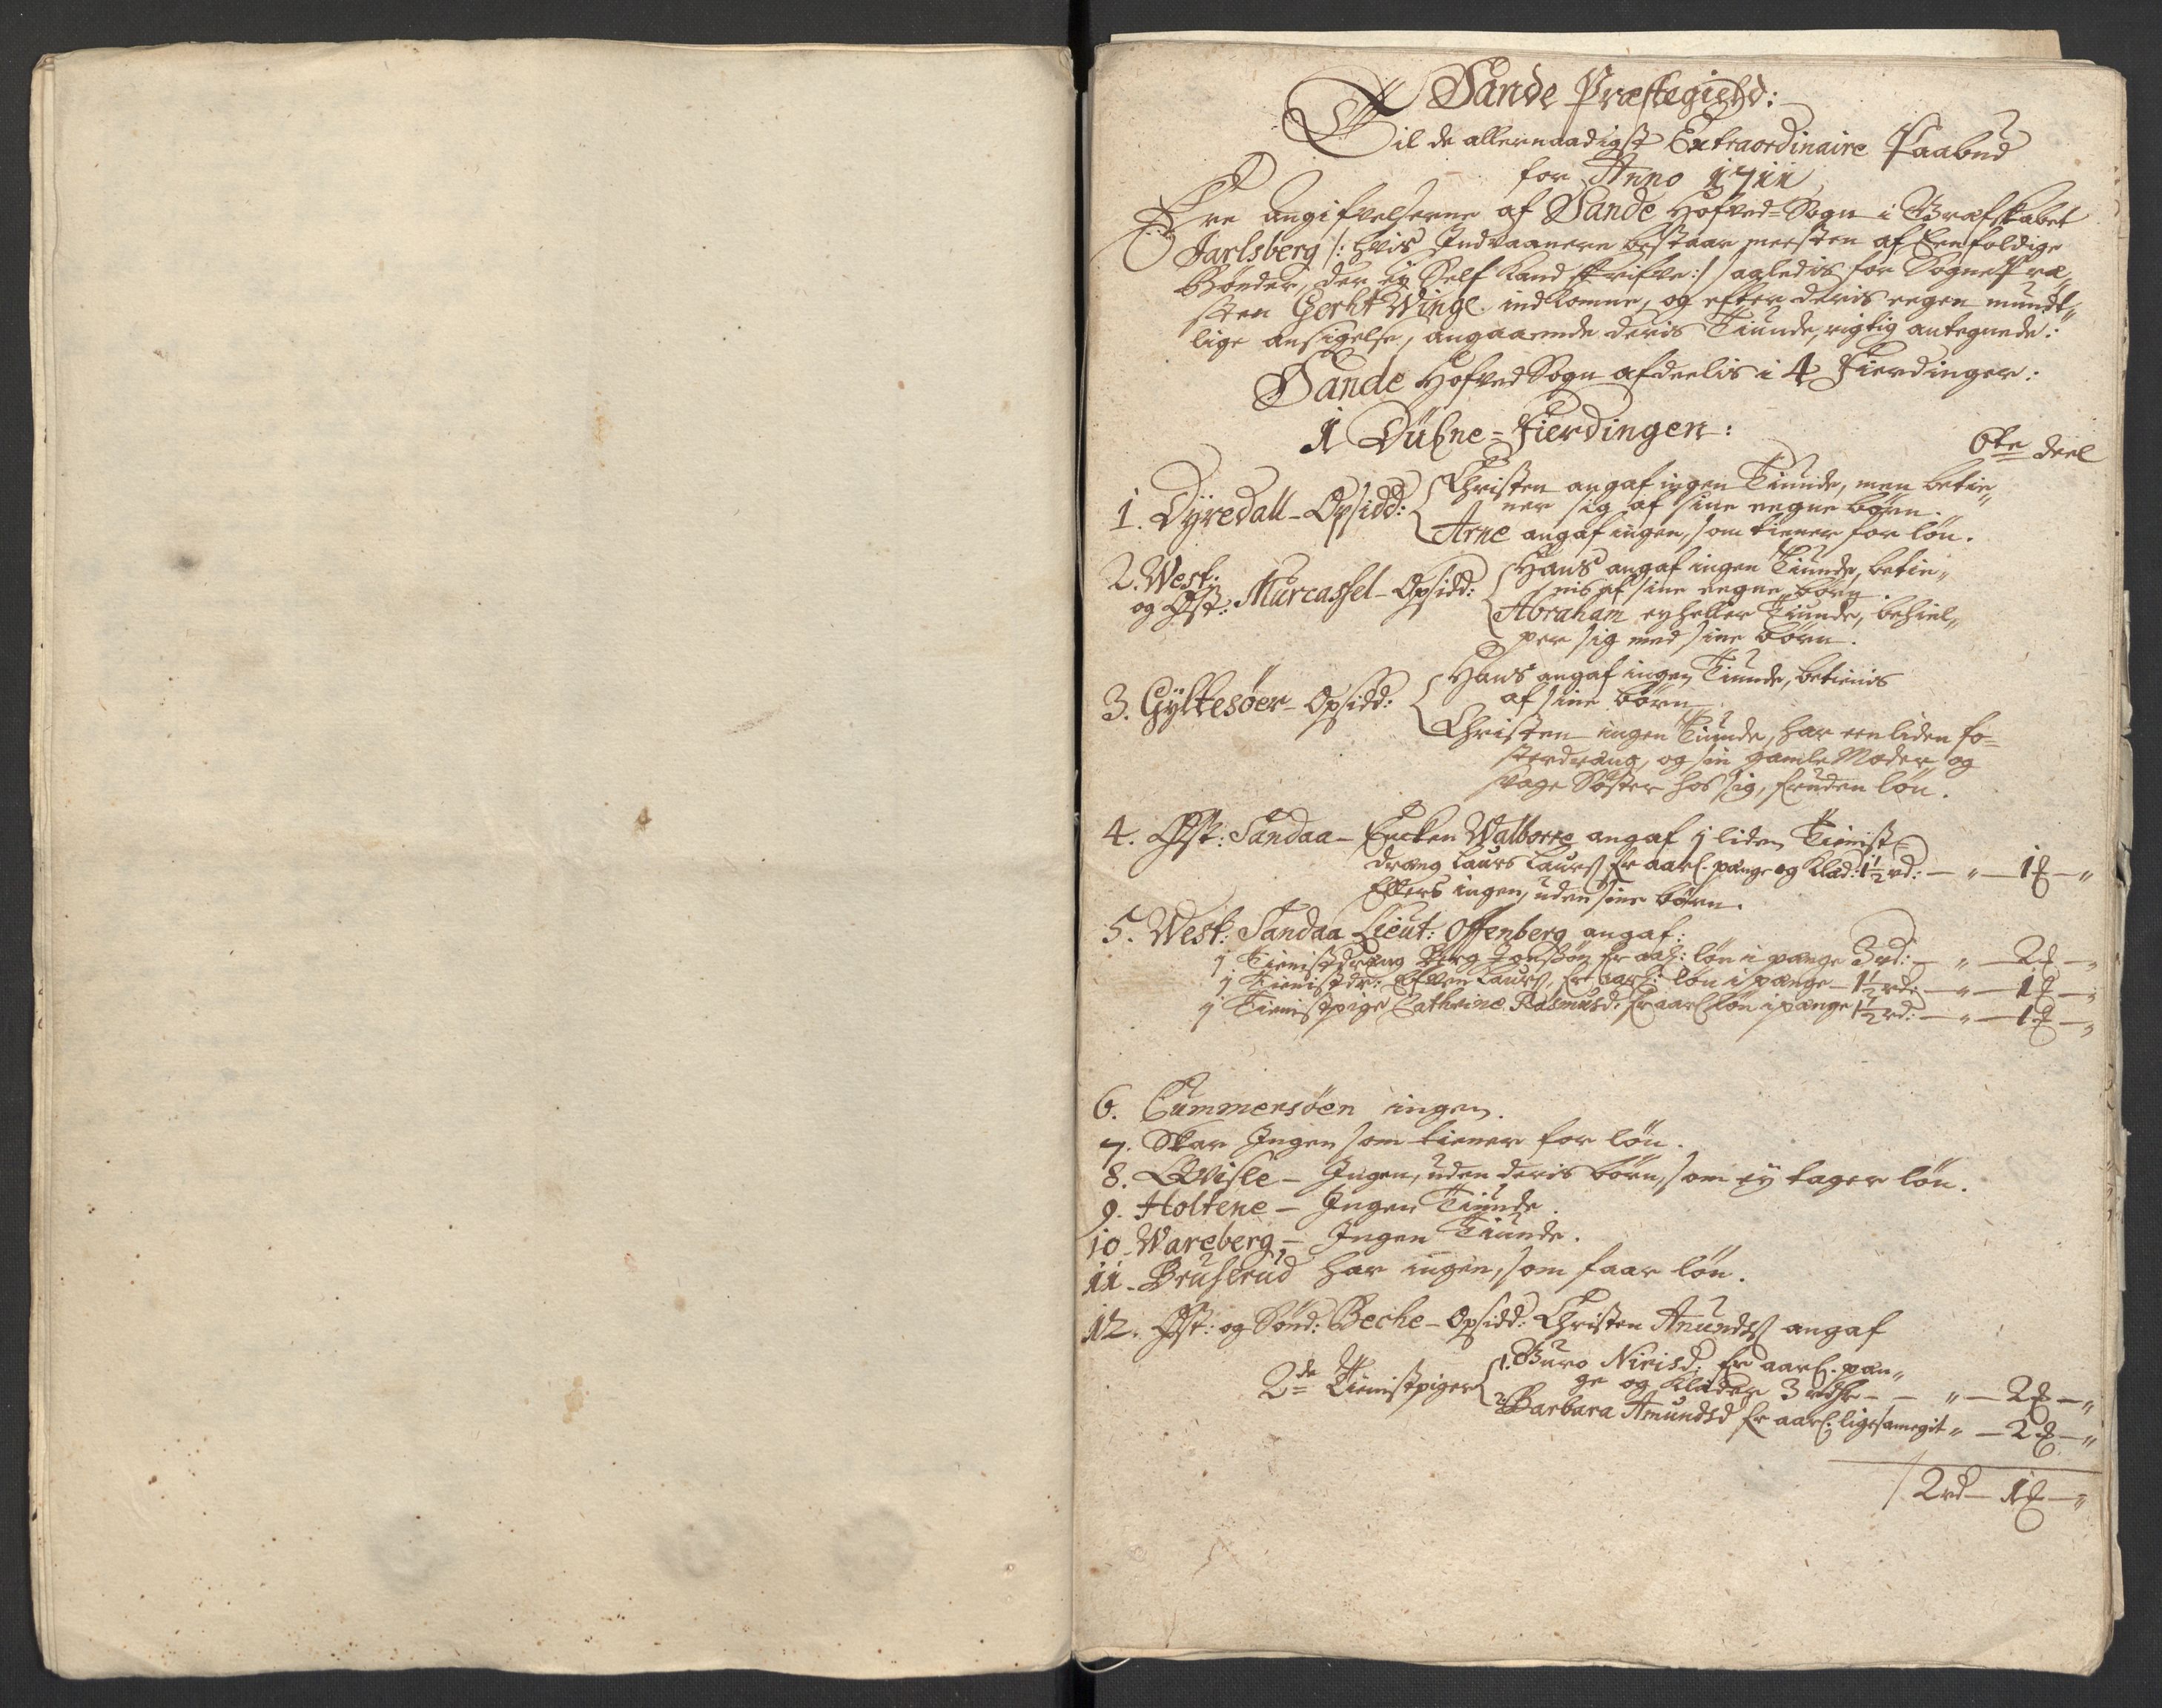 Sande Præstegield:
Til de allernaadigst Extraordinaire Paabud
for Anno 1711
Ere angifvelserne af Sande Hofved-Sogn i Grafskabet
Jarlsberg /: hvis Indvaanere bestaar meesten af Eenfoldige
Bønder, der ey Self kand skrifve :/ saaledis for SognePræ„
sten Gerht Winge indkomne, og efter deris eegen mundt„
lige ansigelse, angaaende deris Tiunde, rigtig antegnede:
Sande Hofved Sogn afdeelis i 4 Fierdinger:
1 Düßne-Fierdingen:
6te deel
1. Dÿredall-Opsidd: Christen angaf ingen Tiunde, men betie„
ner sig af sine eegne børn.
Arne angaf ingen, som tiener for løn.
2. West:
og Øst: Murcassel-Opsidd: Hans angaf ingen Tiunde, betie„
nis af sine eegne børn.
Abraham ey heller Tiunde, behiel„
per sig med sine børn.
3. Gÿltesöer-Opsidd: Hans angaf ingen Tiunde, betienis
af sine børn.
Christen ingen Tiunde, har een liden fo=
sterdreng, og sin gamle Moder og
svage Søster hos sig, foruden løn.
4. Øst: Sandaa- Encken Walborre angaf j liden Tienist=
dreng Laurs Laurs: for aarl. penge og Klæd: 1½ rd: — „ — 1 ß — „
Ellers ingen, uden sine børn.
5. West: Sandaa Lieut: Offenberg angaf:
j Tienistdreng Berg Jonssøn for aarl: løn i penge 3 rd: — „ — 2 ß — „
j Tienistdr: Efven Laurs: for aarl: løn i penge — 1½ rd: — „ — 1 ß — „
j Tienistpige Cathrine Rasmusd: for aarl løn i penge 1½ rd: — „ — 1 ß — „
6. Cummersöen ingen.
7. Skar Ingen som tiener for løn.
8. Qvisle — Ingen, uden deris børn, som ey tager løn.
9. Holtene — Ingen Tiunde.
10. Wareberg — Ingen Tiunde.
11. Bruserud har ingen, som faar løn.
12. Øst: og Sönd: Beche-Opsidd: Christen Anunds: angaf
2de Tienistpiger 1. Guro Nirisd: for aarl. pen„
ge og Klæder 3 rdr — — „ — 2 ß — „
2. Barbara Amundsd for aarl: lige samegit „ — 2 ß — „
2 rd — 1 ß — „